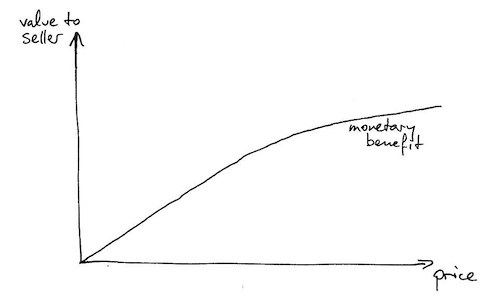 value to
seller
monetary
benefit
price